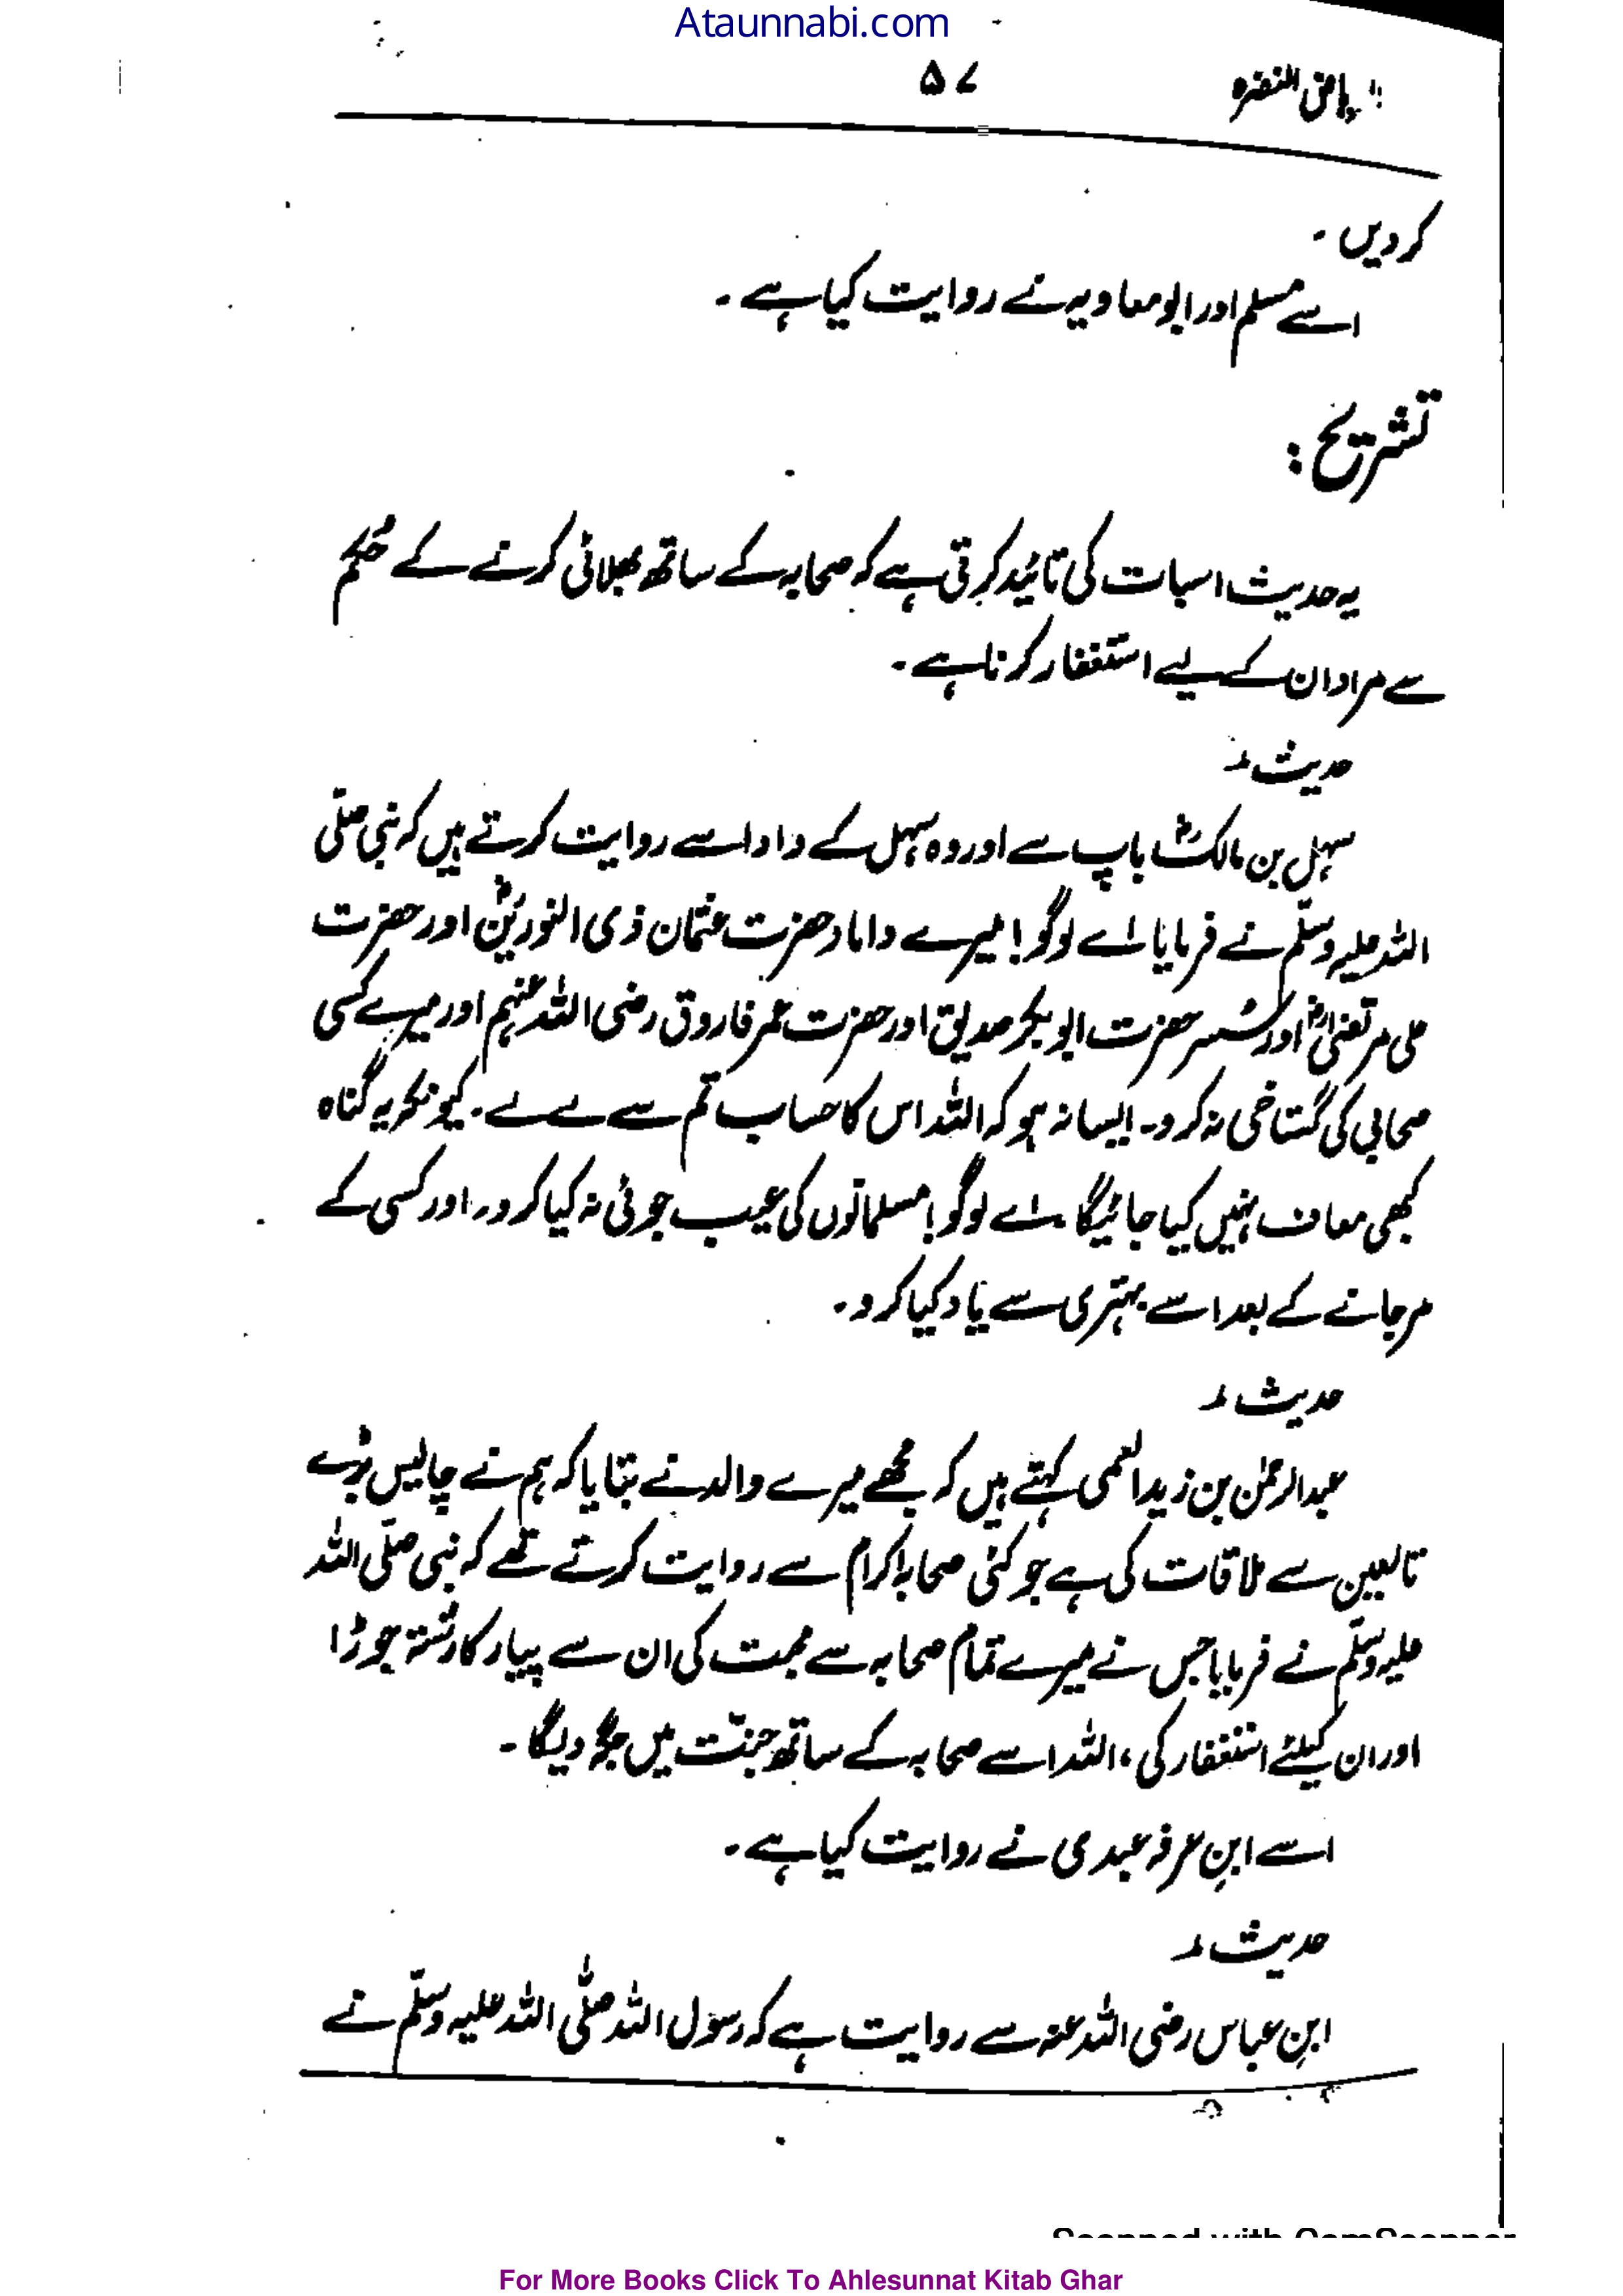 Ataunnabi.com
ریاض النضرہ ۵۷
کر دیں ۔
اسے مسلم اور ابو معاویہ نے روایت کیا ہے ۔
تشریح :
یہ حدیث اسبات کی تائید کرتی ہے کہ صحابہ کے ساتھ بھلائی کرنے کے حُکم
سے مراد ان کے لیے استغفار کرنا ہے ۔
حدیث ؍
سہل بن مالکؓ باپ سے اور وہ سہل کے دادا سے روایت کرتے ہیں کہ نبی صلّی
اللہ علیہ وسلّم نے فرمایا اے لوگو ! میرے داماد حضرت عثمان ذی النورینؓ اور حضرت
علی مرتضیٰؓ اور سُسر حضرت ابو بکر صدیق اور حضرت عمر فاروق رضی اللہ عنہم اور میرے کسی
صحابی کی گستاخی نہ کرو ۔ ایسا نہ ہو کہ اللہ اس کا حساب تم سے لے لے ۔ کیونکہ یہ گناہ
کبھی معاف نہیں کیا جائیگا ۔ اے لوگو ! مسلمانوں کی عیب جوئی نہ کیا کرو ۔ اور کسی کے
مر جانے کے بعد اسے بہتری سے یاد کیا کرو ۔
حدیث ؍
عبدالرحمٰن بن زید العمی کہتے ہیں کہ مجھے میرے والد نے بتایا کہ ہم نے چالیس بڑے
تابعین سے ملاقات کی ہے جو کئی صحابہ کرام سے روایت کرتے تھے کہ نبی صلّی اللہ
علیہ وسلّم نے فرمایا جس نے میرے تمام صحابہ سے محبت کی ان سے پیار کا رشتہ جوڑا
اور ان کیلئے استغفار کی ، اللہ اسے صحابہ کے ساتھ جنّت میں جگہ دیگا ۔
اسے ابنِ عرفہ عبدی نے روایت کیا ہے ۔
حدیث ؍
ابنِ عباس رضی اللہ عنہ سے روایت ہے کہ رسول اللہ صلّی اللہ علیہ وسلّم نے
Scanned with CamScanner
For More Books Click To Ahlesunnat Kitab Ghar